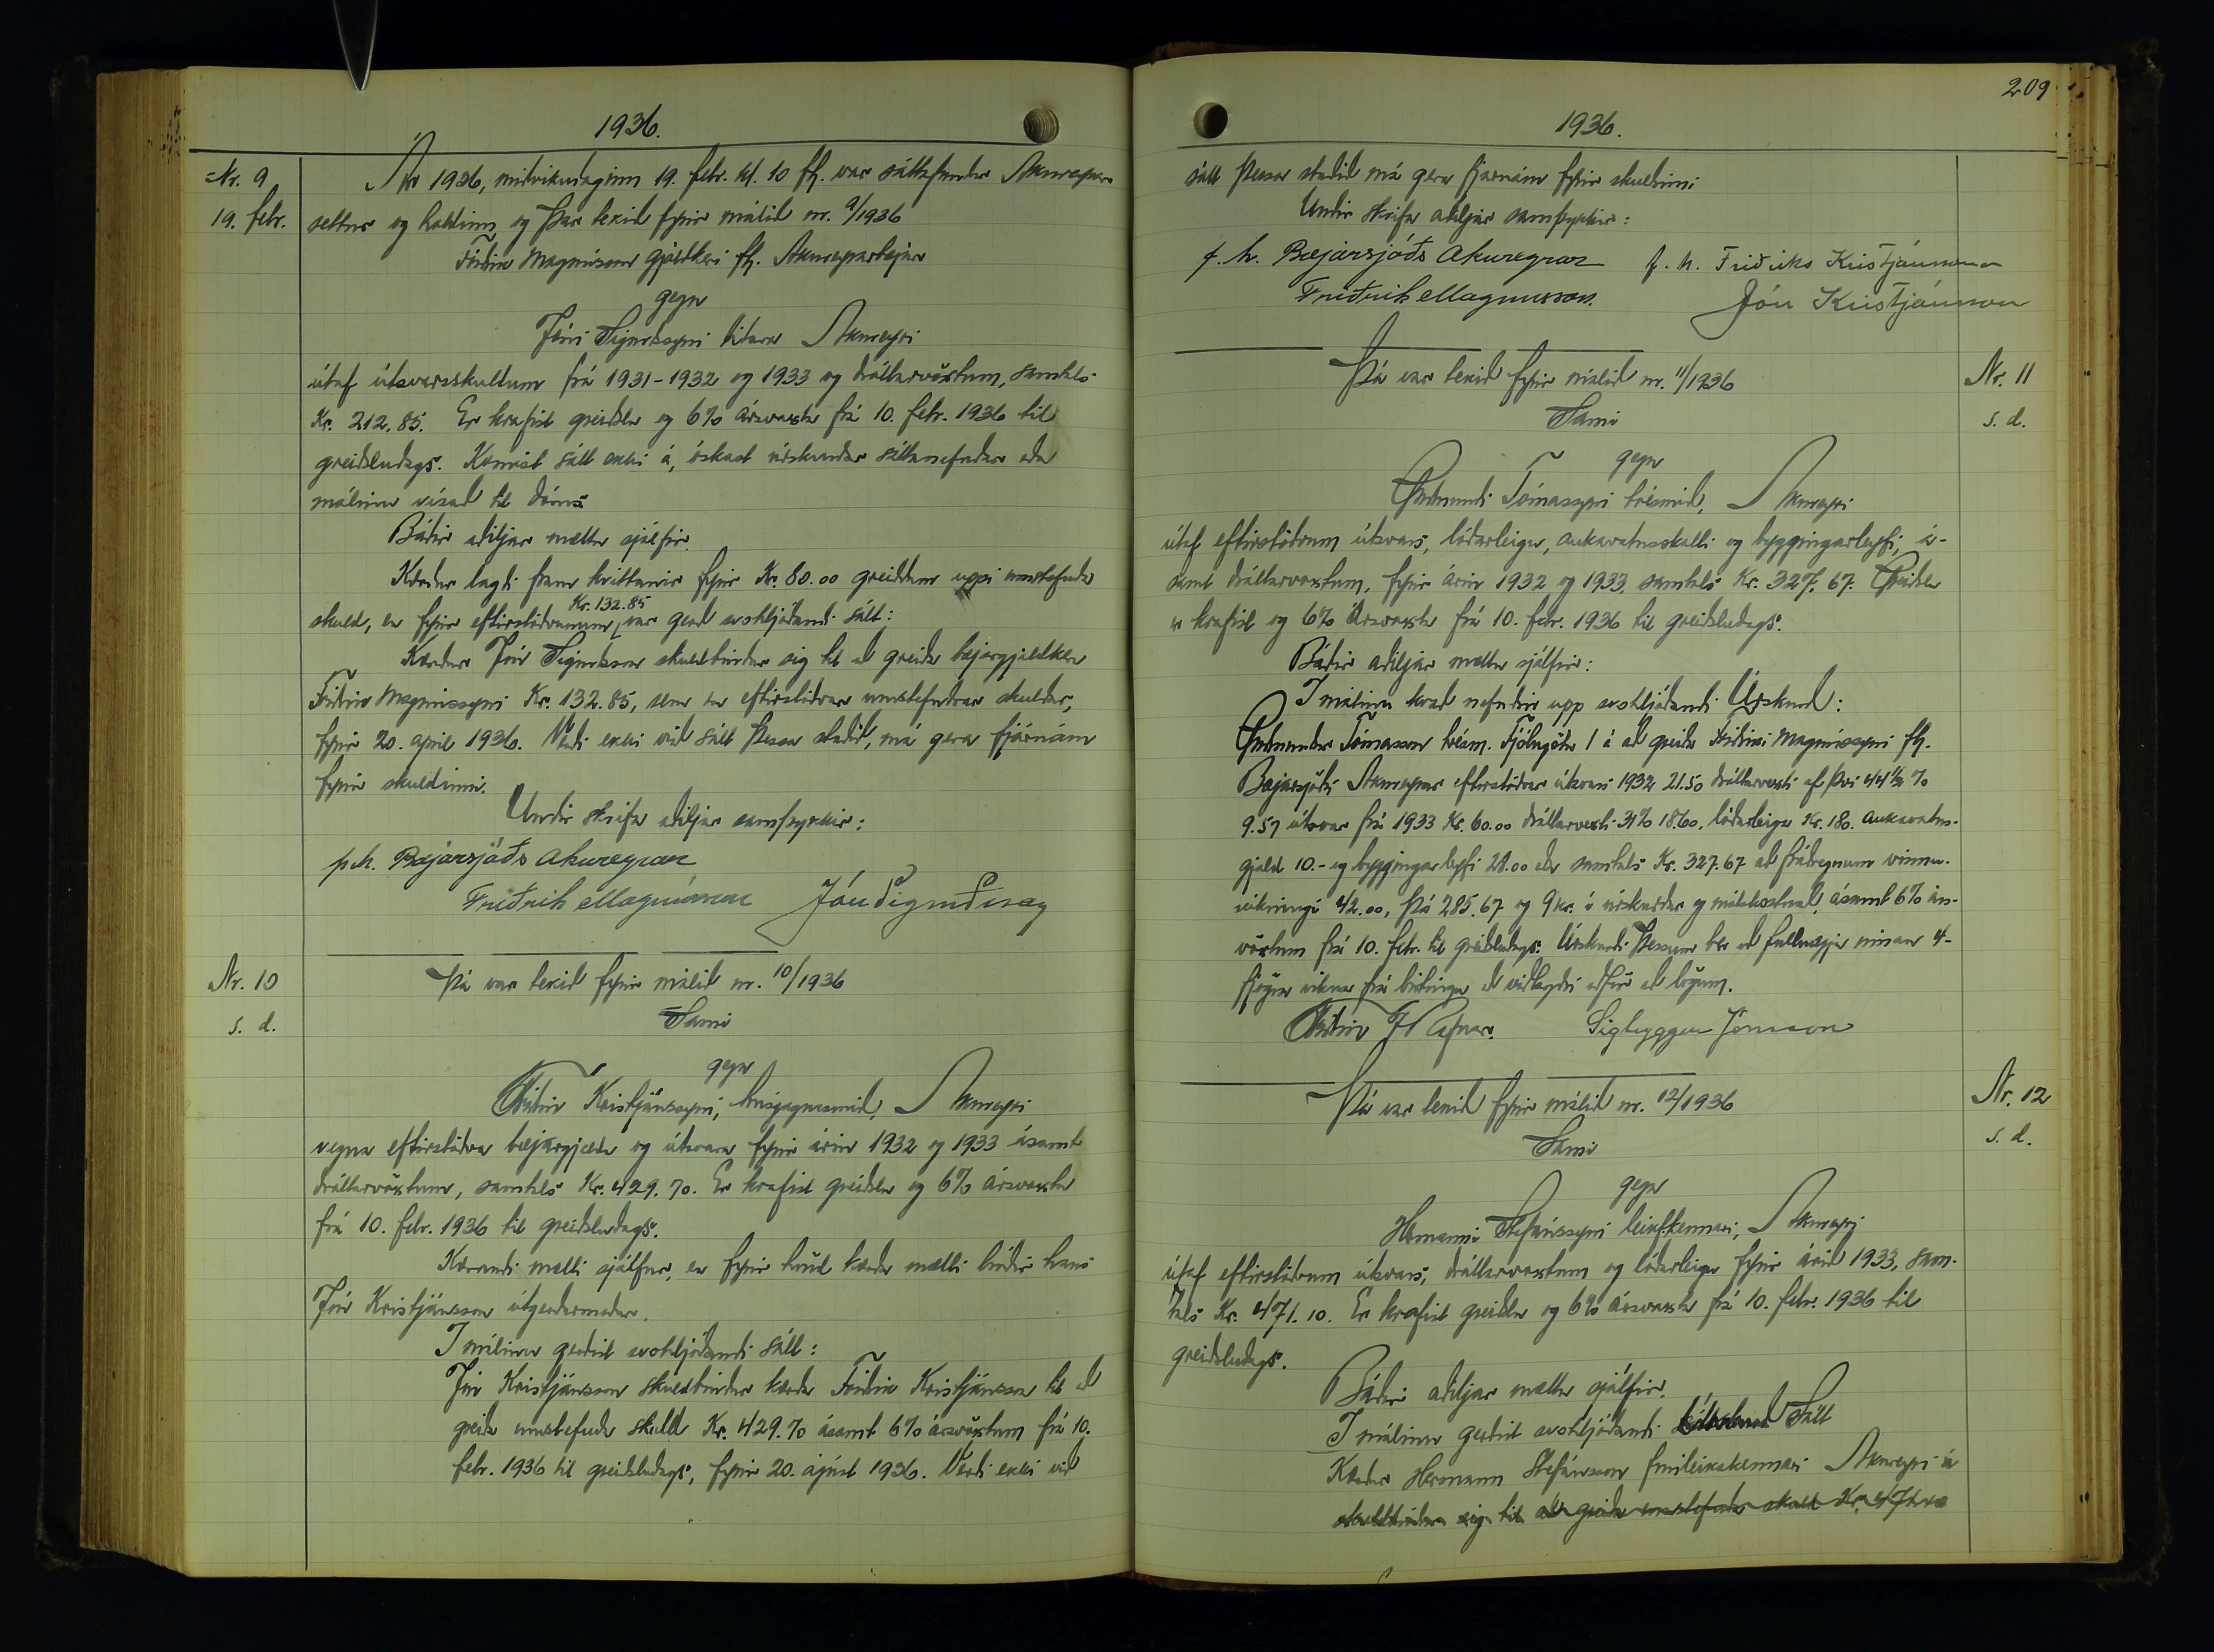 1936.
Nr. 9
19. febr.
Ár 1936, miðvikudaginn 19. febr. kl. 10 fh. var sáttafundur Akureyrar
settur og haldinn og þar tekið fyrir málið nr. 9/1936
Friðrik Magnússon gjaldkeri fh. Akureyrarbæjar
gegn
Jóni Sigurðssyni Akureyri
útaf útsvarsskuldum frá 1931-1932 og 1933 og dráttarvöxtum, samtals
Kr. 212.85. Er krafist greiðslu og 6% ársvaxta frá 10. febr. 1936 til
greiðsludags. Komist sátt ekki á, óskast úrskurðar sáttanefndar eða
málinu vísað til dóms.
Báðir aðiljar mættu sjálfir.
Kærður lagði fram kvittanir fyrir Kr. 80.00 greiddum uppí umstefnda
skuld, en fyrir eftirstöðvunum, Kr. 132.85 var gerð svohljóðandi sátt:
Kærður Jón Sigurðsson skuldbindur sig til að greiða bæjargjaldkera
Friðrik Magnússyni Kr. 132.85, sem er eftirstöðvar umstefndrar skuldar,
fyrir 20. apríl 1936. Verði ekki við sátt þessa staðið, má gera fjárnám
fyrir skuldinni.
Undir skrifa aðiljar samþykkir:
p.h. Bæjarsjóðs Akureyrar
Friðrik Magnússon Jón Sigurðsson
Nr. 10
s. d.
Þá var tekið fyrir málið nr. 10/1936
Sami
gegn
Friðrik Kristjánssyni, húsgagnasmið, Akureyri
vegna eftirstöðva bæjargjalda og útsvara fyrir árin 1932 og 1933 ásamt
dráttarvöxtum, samtals Kr. 429.70. Er krafist greiðslu og 6% ársvaxta
frá 10. febr. 1936 til greiðsludags.
Kærandi mætti sjálfur, en fyrir hönd kærða mætti bróðir hans
Jón Kristjánsson útgerðarmaður.
Í málinu gerðist svohljóðandi sátt:
Jón Kristjánsson skuldbindur kærða Friðrik Kristjánsson til að
greiða umstefnda skuld Kr. 429.70 ásamt 6% ársvöxtum frá 10.
febr. 1936 til greiðsludags, fyrir 20. ágúst 1936. Verði ekki við
209
1936.
sátt þessa staðið má gera fjárnám fyrir skuldinni
Undir skrifa aðiljar samþykkir:
f. h. Bæjarsjóðs Akureyrar f. h. Friðriks Kristjánssonar
Friðrik Magnússon. Jón Kristjánsson
Nr. 11
s. d.
Þá var tekið fyrir málið nr. 11/1936
Sami
gegn
Guðmundi Tómassyni trésmið, Akureyri
útaf eftirstöðvum útsvars, lóðarleigu, aukavatnsskatti og byggingarleyfi, á-
samt dráttarvöxtum, fyrir árin 1932 og 1933, samtals Kr. 327.67. Greiðslu
er krafist og 6% ársvaxta frá 10. febr. 1936 til greiðsludags.
Báðir aðiljar mættu sjálfir:
Í málinu kvað nefndin upp svohljóðandi Úrskurð:
Guðmundur Tómasson trésm. Fjólugötu 1 á að greiða Friðriki Magnússyni fh.
Bæjarsjóðs Akureyrar eftirstöðvar útsvars 1932 21.50 dráttarvexti af því 44 1/2 %
9.57 útsvar frá 1933 Kr. 60.00 dráttarvexti 31% 18.60, lóðarleigu Kr. 180. aukavatns-
gjald 10.- og byggingarleyfi 28.00 eða samtals Kr. 327.67 að frádregnum vinnu-
reikningi 42.00, þá 285.67 og 9 kr. í úrskurðar og málskostnað, ásamt 6% árs-
vöxtum frá 10. febr. til greiðsludags. Úrskurði þessum ber að fullnægja innan 4-
fjögra vikna frá birtingu að viðlagðri aðför að lögum.
Friðrik J. Rafnar. Sigtryggur Jónsson
Nr. 12
s. d.
Þá var tekið fyrir málið nr. 12/1936
Sami
gegn
Hermanni Stefánssyni leikf.kennari, Akureyri
útaf eftirstöðvum útsvars, dráttarvöxtum og lóðarleigu fyrir árið 1933, sam-
tals Kr. 471.10. Er krafist greiðslu og 6% ársvaxta frá 10. febr. 1936 til
greiðsludags.
Báðir aðiljar mættu sjálfir.
Í málinu gerðist svohljóðandi Sátt
Kærður Hermann Stefánsson fimleikakennari Akureyri á
skuldbindur sig til að greiða umstefnda skuld Kr.